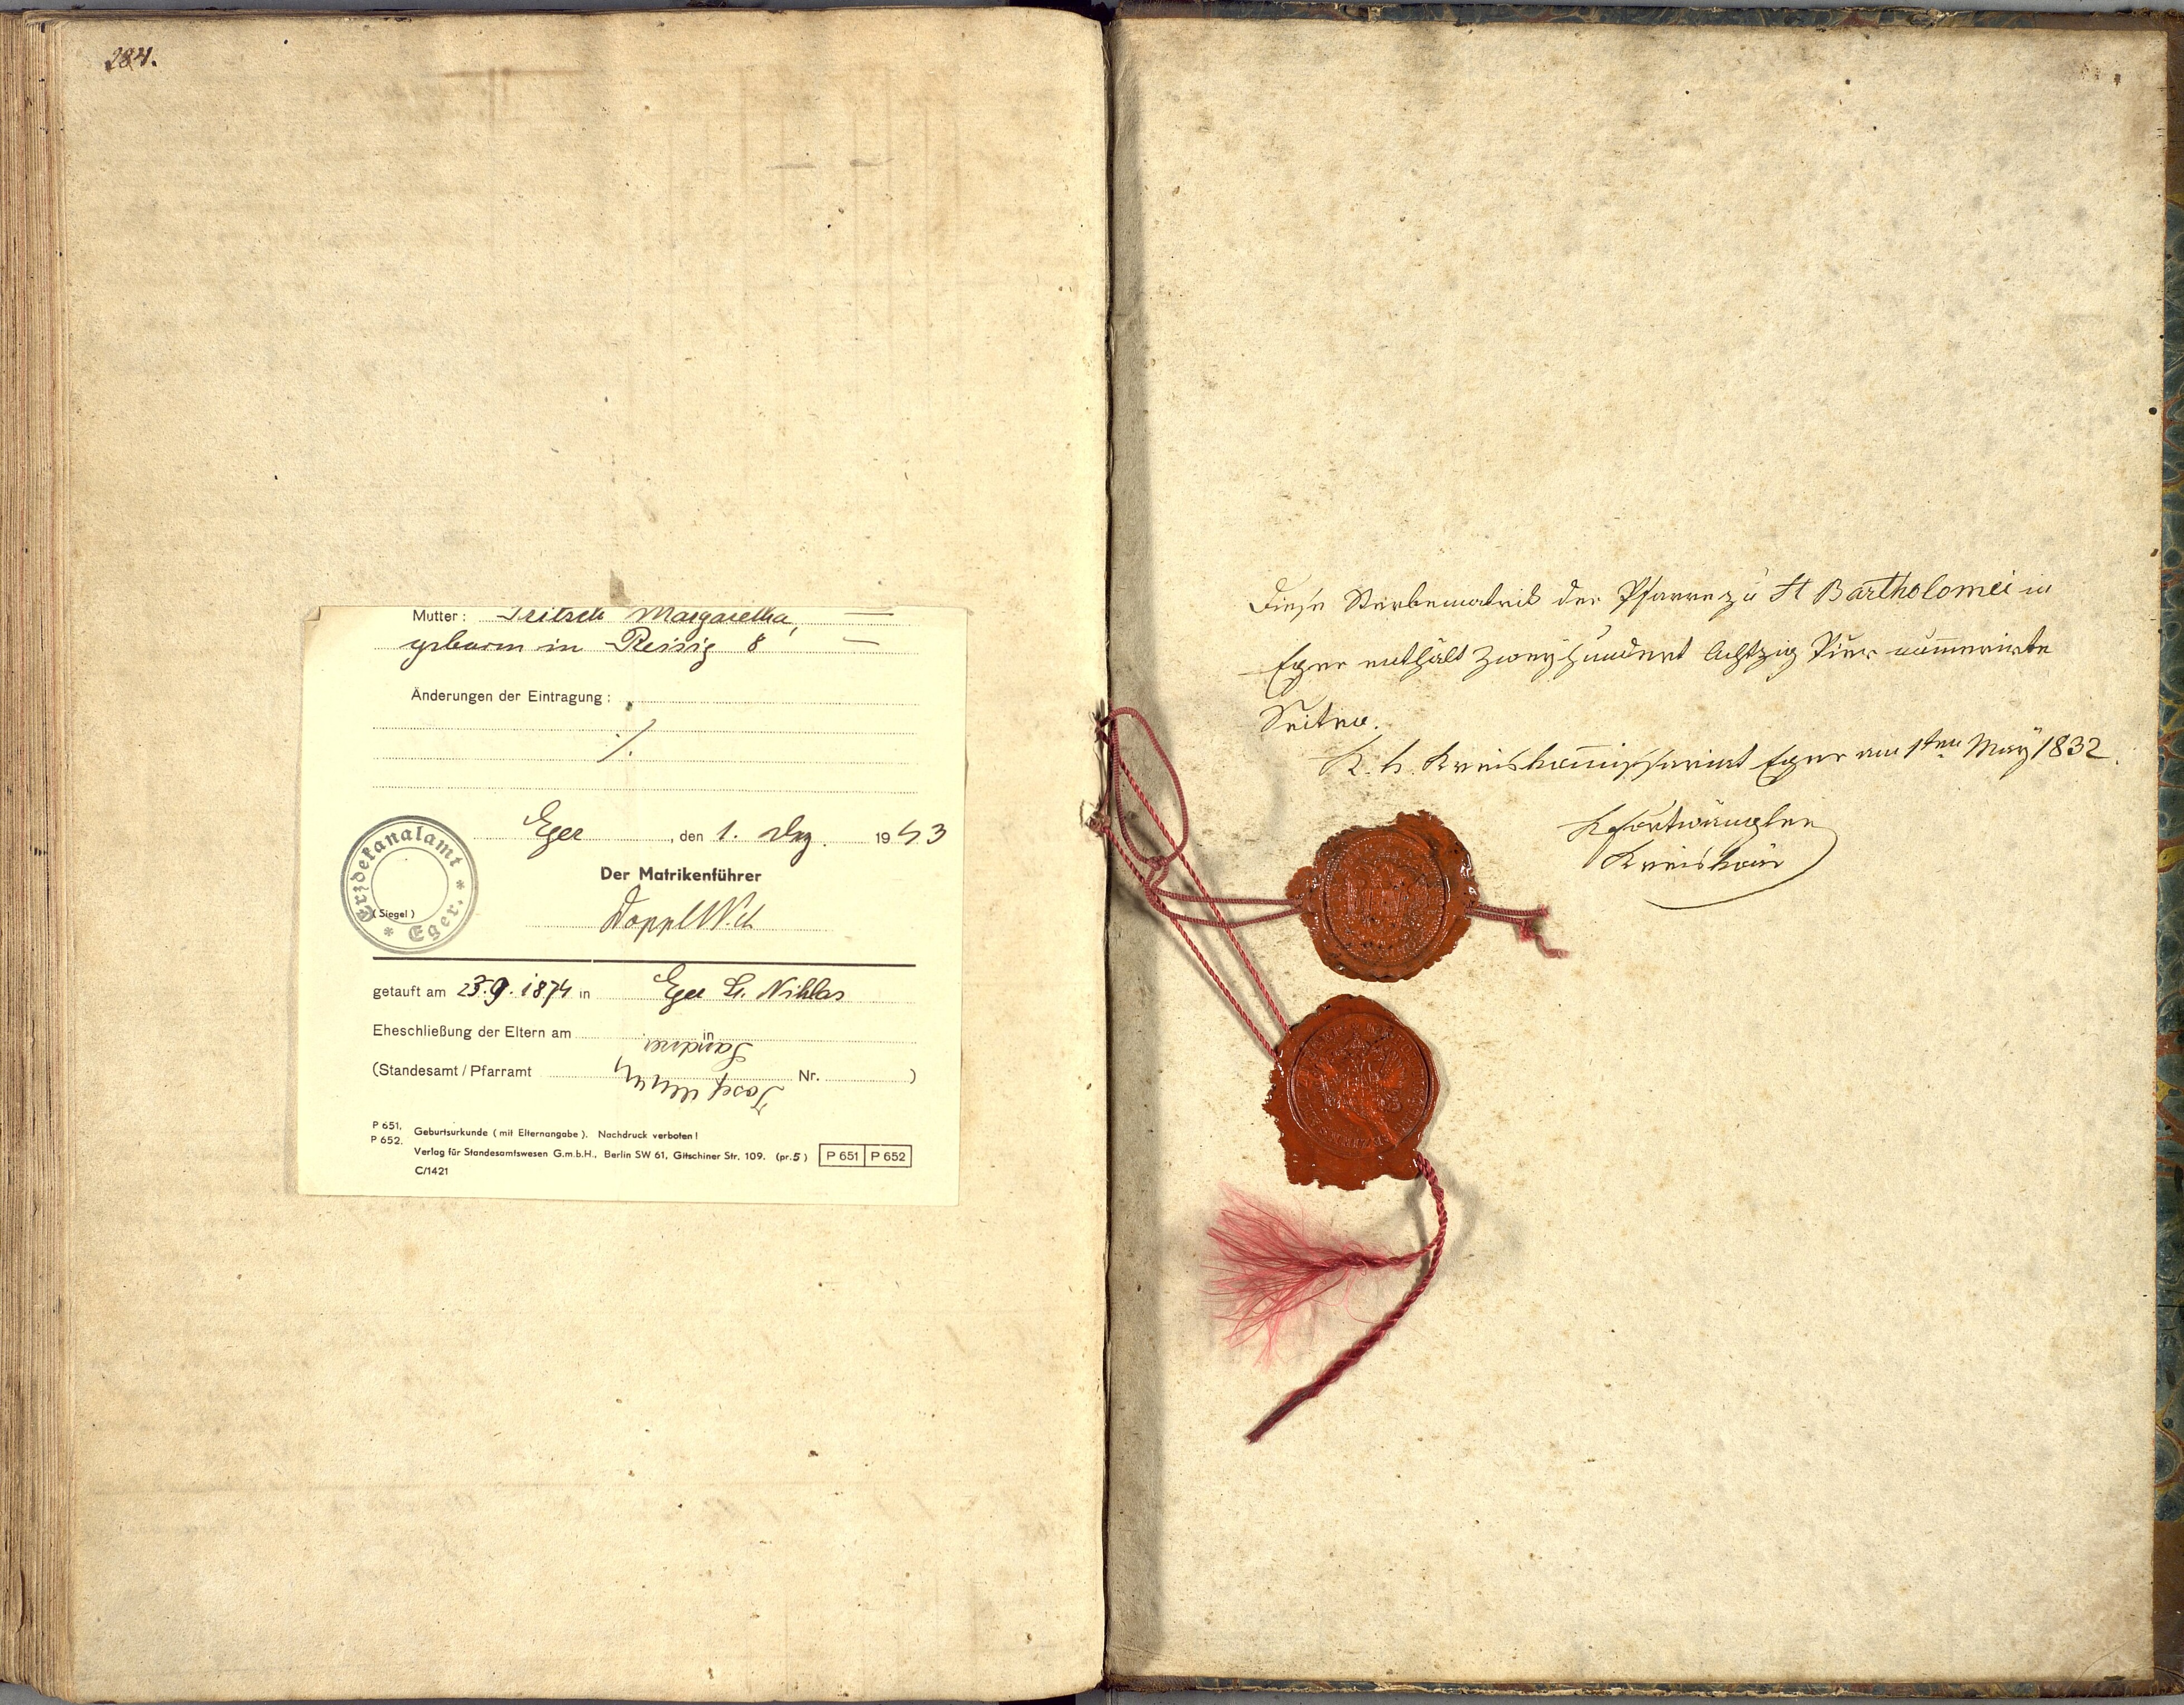 284.
Mutter: Tritsch Margaretha,
geboren in Reisig 8
Änderungen der Eintragung:
./.
Eger, den 1. Dez. 1943
Der Matrikenführer
Erzdekanalamt
* Eger. *
(Siegel)
getauft am 23.9.1874 in Eger St. Niklas
Eheschließung der Eltern am in
(Standesamt / Pfarramt Nr. )
Josef
P 651. Geburtsurkunde (mit Elternangabe). Nachdruck verboten!
P 652.
Verlag für Standesamtswesen G.m.b.H., Berlin SW 61, Gitschiner Str. 109. (pr.5) P 651 P 652
C/1421
Diese Sterbematrik der Pfarre zu St Bartholomei in
Eger enthält Zweyhundert Achtzig Vier num̅erirte
Seiten.
K. k. Kreiskom̅issariat Eger am 1ten May 1832.
Kreiskom̅